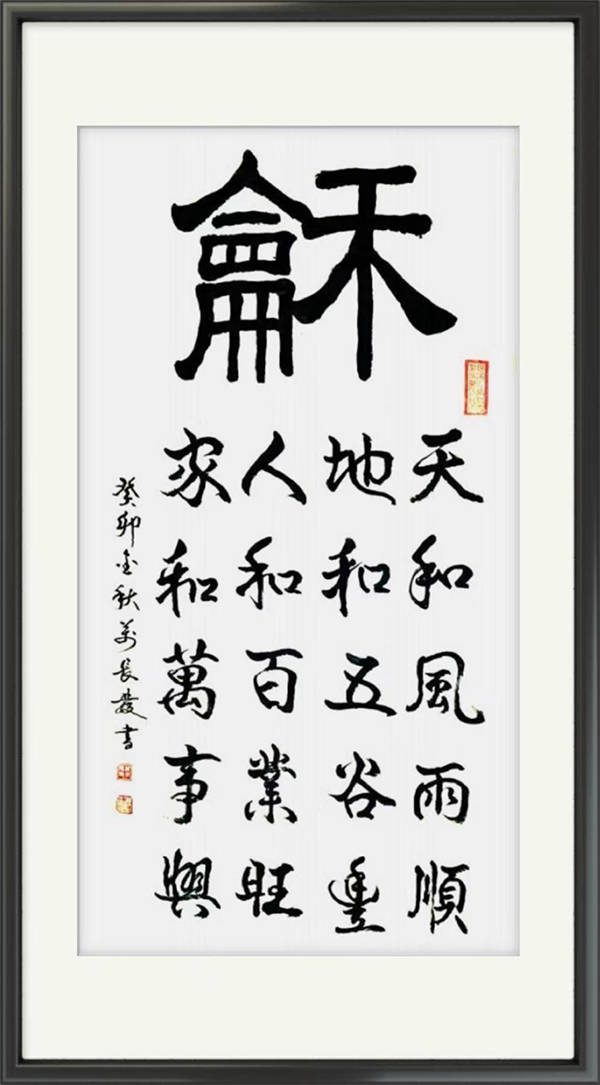 龢
天和風雨順
地和五谷豊
人和百業旺
家和萬事興
癸卯金秋萬長發書